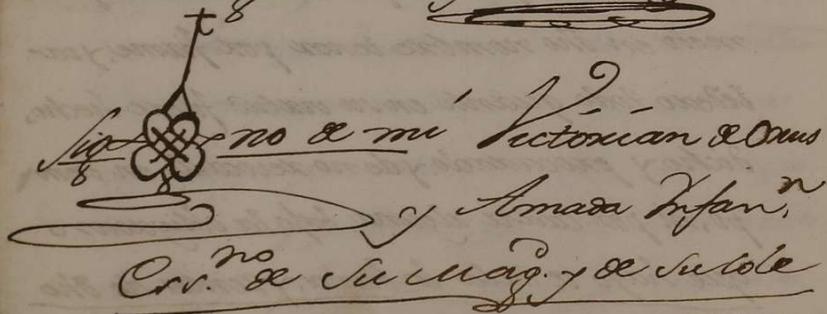 Sig no de mi Victorian de Orus
y Amada Infan.n
Ess.no de su Mag.d y de su Cole